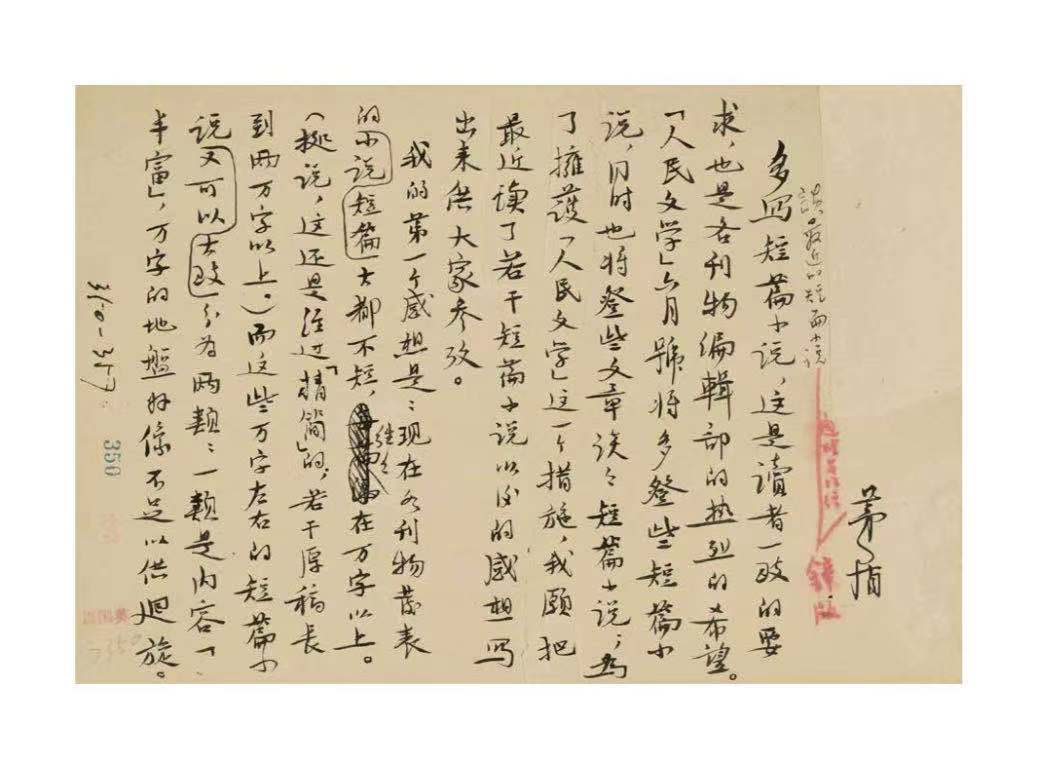 茅盾
談最近的短篇小说
多写短篇小说，这是讀者一致的要
求，也是各刊物编輯部的热烈的希望。
「人民文学」六月號将多登些短篇小
说，同时也将登些文章谈谈短篇小说；為
了擁護「人民文学」这一个措施，我願把
最近读了若干短篇小说以後的感想写
出来供大家参攷。
我的第一个感想是：现在各刊物發表
的小说短篇大都不短，往往在万字以上。
（据说，这还是经过「精简」的，若干原稿长
到两万字以上。）而这些万字左右的短篇小
说又可以大致分为两類：一類是内容「
丰富」，万字的地盤好像不足以供迴旋。
350